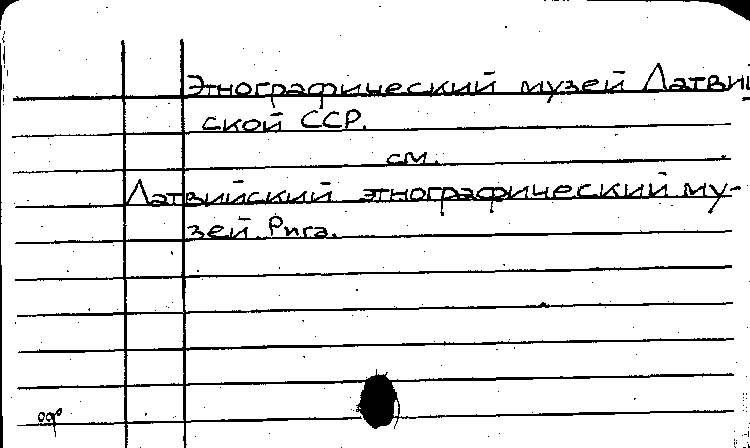 Этнографический музей Латвий
ской ССР.
см.
Латвийский этнографический му-
зей Рига.